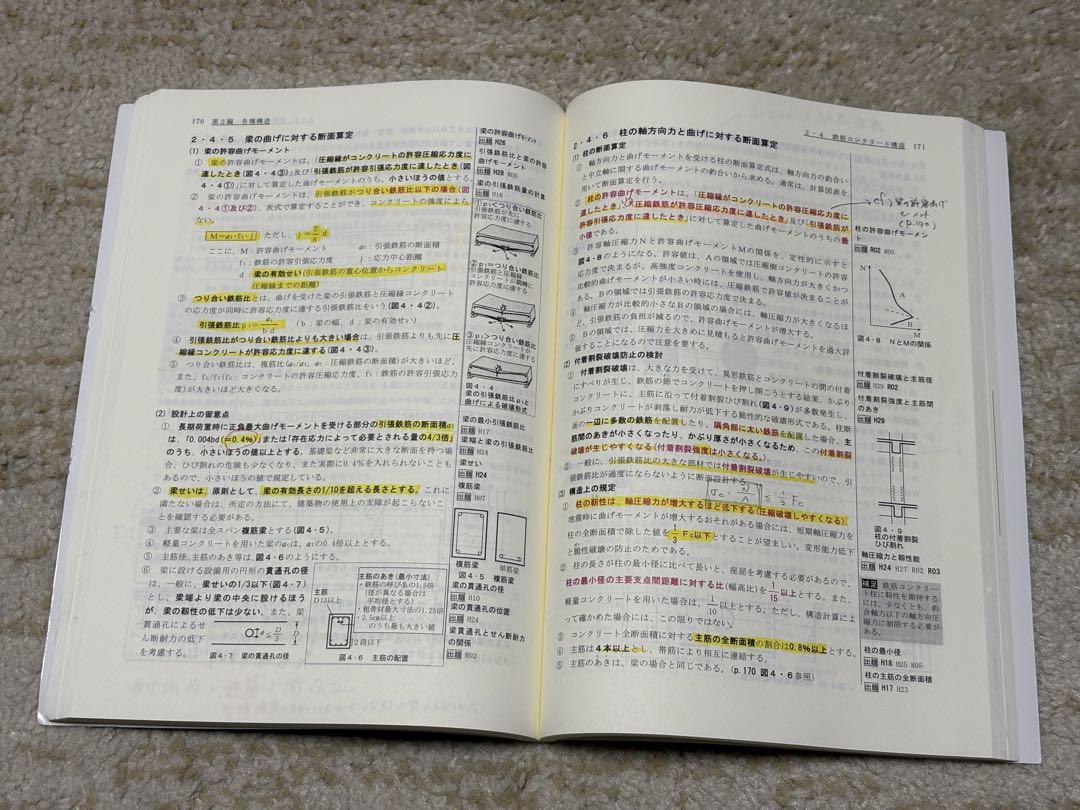 170 第2編 各種構造
2・4・5 梁の曲げに対する断面算定
(1) 梁の許容曲げモーメント
① 梁の許容曲げモーメントは、「圧縮縁がコンクリートの許容圧縮応力度に
達したとき(図4・4③)」及び「引張鉄筋が許容引張応力度に達したとき(図
4・4①)」に対して算定した曲げモーメントのうち、小さいほうの値とする。
② 梁の許容曲げモーメントは、引張鉄筋比がつり合い鉄筋比以下の場合(図
4・4①及び②)、次式で算定することができ、コンクリートの強度によら
ない。
M=at・ft・j ただし、j=7/8 d
ここに、M:許容曲げモーメント at:引張鉄筋の断面積
ft:鉄筋の許容引張応力度 j:応力中心距離
d:梁の有効せい(引張鉄筋の重心位置からコンクリート
圧縮縁までの距離)
③ つり合い鉄筋比とは、曲げを受けた梁の引張鉄筋と圧縮縁コンクリート
の応力度が同時に許容応力度に達する引張鉄筋比をいう(図4・4②)。
引張鉄筋比 pt=at/bd (b:梁の幅、d:梁の有効せい)
④ 引張鉄筋比がつり合い鉄筋比よりも大きい場合は、引張鉄筋よりも先に圧
縮縁コンクリートが許容応力度に達する(図4・4③)。
⑤ つり合い鉄筋比は、複筋比(ac/at、ac:圧縮鉄筋の断面積)が大きいほど、
また、fc/ft(fc:コンクリートの許容圧縮応力度、ft:鉄筋の許容引張応
力度)が大きいほど大きくなる。
(2) 設計上の留意点
① 長期荷重時に正負最大曲げモーメントを受ける部分の引張鉄筋の断面積at
は、「0.004bd(=0.4%)」または「存在応力によって必要とされる量の4/3倍」
のうち、小さいほうの値以上とする。基礎梁など非常に大きな断面を持つ場
合、ひび割れの危険も少なくなり、また実際に0.4%を入れられないことも
あるので、小さいほうの値で規定している。
② 梁せいは、原則として、梁の有効長さの1/10を超える長さとする。これに
満たない場合は、所定の方法にて、建築物の使用上の支障が起こらないこと
を確認する必要がある。
③ 主要な梁は全スパン複筋梁とする(図4・5)。
④ 軽量コンクリートを用いた梁のacは、atの0.4倍以上とする。
⑤ 主筋径、主筋のあき等は、図4・6のようにする。
⑥ 梁に設ける設備用の円形の貫通孔の径
は、一般に、梁せいの1/3以下(図4・7)
とし、梁端より梁の中央に設けるほう
が、梁の靭性の低下は少ない。また、梁
貫通孔によるせ
ん断耐力の低下
を考慮する。
φ≦D/3 D
図4・7 梁の貫通孔の径
主筋
D13以上
主筋のあき(最小寸法)
・鉄筋の呼び名の1.5倍
(径が異なる場合は
平均径とする)
・粗骨材最大寸法の1.25倍
・2.5cm以上
のうち最も大きい値
2段以下
図4・6 主筋の配置
梁の許容曲げモーメント
出題 H26
引張鉄筋比と梁の許容
曲げモーメント
出題 H28 R05
梁の引張鉄筋量の計算
出題 H18
①pt<つり合い鉄筋比
引張鉄筋が先に
許容応力度に達する
②pt=つり合い鉄筋比
引張鉄筋と圧縮縁
コンクリートが同時に
許容応力度に達する
③pt>つり合い鉄筋比
圧縮縁コンクリートが
先に許容応力度に達する
図4・4
引張鉄筋比ptと
曲げによる破壊形式
梁の最小引張鉄筋比
出題 H17
梁幅と梁の引張鉄筋比
出題 H24
梁せい
出題 H24
複筋梁
出題 H07
複筋梁 単筋梁
図4・5 複筋梁
梁の貫通孔の径
出題 H10
梁の貫通孔の位置
出題 H24
梁貫通孔とせん断耐力
の関係
出題 R02
2・4 鉄筋コンクリート構造 171
2・4・6 柱の軸方向力と曲げに対する断面算定
(1) 柱の断面算定
① 軸方向力と曲げモーメントを受ける柱の断面算定式は、軸方向力の釣合い
と中立軸に関する曲げモーメントの釣合いから求める。通常は、計算図表を
用いて断面算定を行う。
② 柱の許容曲げモーメントは、「圧縮縁がコンクリートの許容圧縮応力度に
達したとき」、「圧縮鉄筋が許容圧縮応力度に達したとき」及び「引張鉄筋が
許容引張応力度に達したとき」に対して算定した曲げモーメントのうちの最
小値である。
③ 許容軸圧縮力Nと許容曲げモーメントMの関係を、定性的に示すと
図4・8のようになる。許容値は、Aの領域では圧縮側コンクリートの許容
応力度で決まるが、高強度コンクリートを使用し、軸方向力が大きくかつ
比較的曲げモーメントが小さい時には、圧縮鉄筋で許容値が決まることが
ある。Bの領域では引張鉄筋の許容応力度で決まる。
④ 軸圧縮力が比較的小さなBの領域の場合には、軸圧縮力が大きくなるほ
ど、引張鉄筋の負担が減るので、許容曲げモーメントが増大する。
⑤ Bの領域では、圧縮力を大きめに見積もると許容曲げモーメントを過大評
価することになるので注意を要する。
(2) 付着割裂破壊防止の検討
① 付着割裂破壊は、大きな力を受けて、異形鉄筋とコンクリートの間の付着
にすべりが生じ、鉄筋の節でコンクリートを押し開こうとする結果、かぶり
コンクリートに、主筋に沿って付着割裂ひび割れ(図4・9)が多数発生し、
かぶりコンクリートが剥落し耐力が低下する脆性的な破壊形式である。柱断
面の一辺に多数の鉄筋を配置したり、隅角部に太い鉄筋を配置した場合、主
筋間のあきが小さくなったり、かぶり厚さが小さくなるため、この付着割裂
破壊が生じやすくなる(付着割裂強度は小さくなる)。
② 一般に、引張鉄筋比の大きな部材では付着割裂破壊が生じやすいので、引
張鉄筋比が過度にならないように断面設計する。
σ0=N/A≦1/3 Fc
(3) 構造上の規定
① 柱の靭性は、軸圧縮力が増大するほど低下する(圧縮破壊しやすくなる)。
地震時に曲げモーメントが増大するおそれがある場合には、短期軸圧縮力を
柱の全断面積で除した値を1/3 Fc以下とすることが望ましい。変形能力低下
と脆性破壊の防止のためである。
② 柱の長さが柱の最小径に比べて長いと、座屈を考慮する必要があるので、
柱の最小径の主要支点間距離に対する比(幅高比)を1/15以上とする。また、
軽量コンクリートを用いた場合は、1/10以上とする。ただし、構造計算によ
って確かめた場合には、この限りではない。
③ コンクリート全断面積に対する主筋の全断面積の割合は0.8%以上とする。
④ 主筋は4本以上とし、帯筋により相互に連結する。
⑤ 主筋のあきは、梁の場合と同じである。(p.170 図4・6参照)
cf) 梁の許容曲げ
モーメント
(p.170)
柱の許容曲げモーメント
出題 R02 R05
N
A
B
M
図4・8 NとMの関係
付着割裂破壊と主筋径
出題 H29 R02
付着割裂破壊と主筋間
のあき
出題 H29
図4・9
柱の付着割裂
ひび割れ
軸圧縮力と靭性能
出題 H24 H27 R02 R03
補足 鉄筋コンクリー
ト柱に靭性を期待する
には、少なくとも、釣
合軸力以下の軸方向圧
縮力に制限する必要が
ある。
柱の最小径
出題 H18 H25 R05
柱の主筋の全断面積
出題 H17 H23